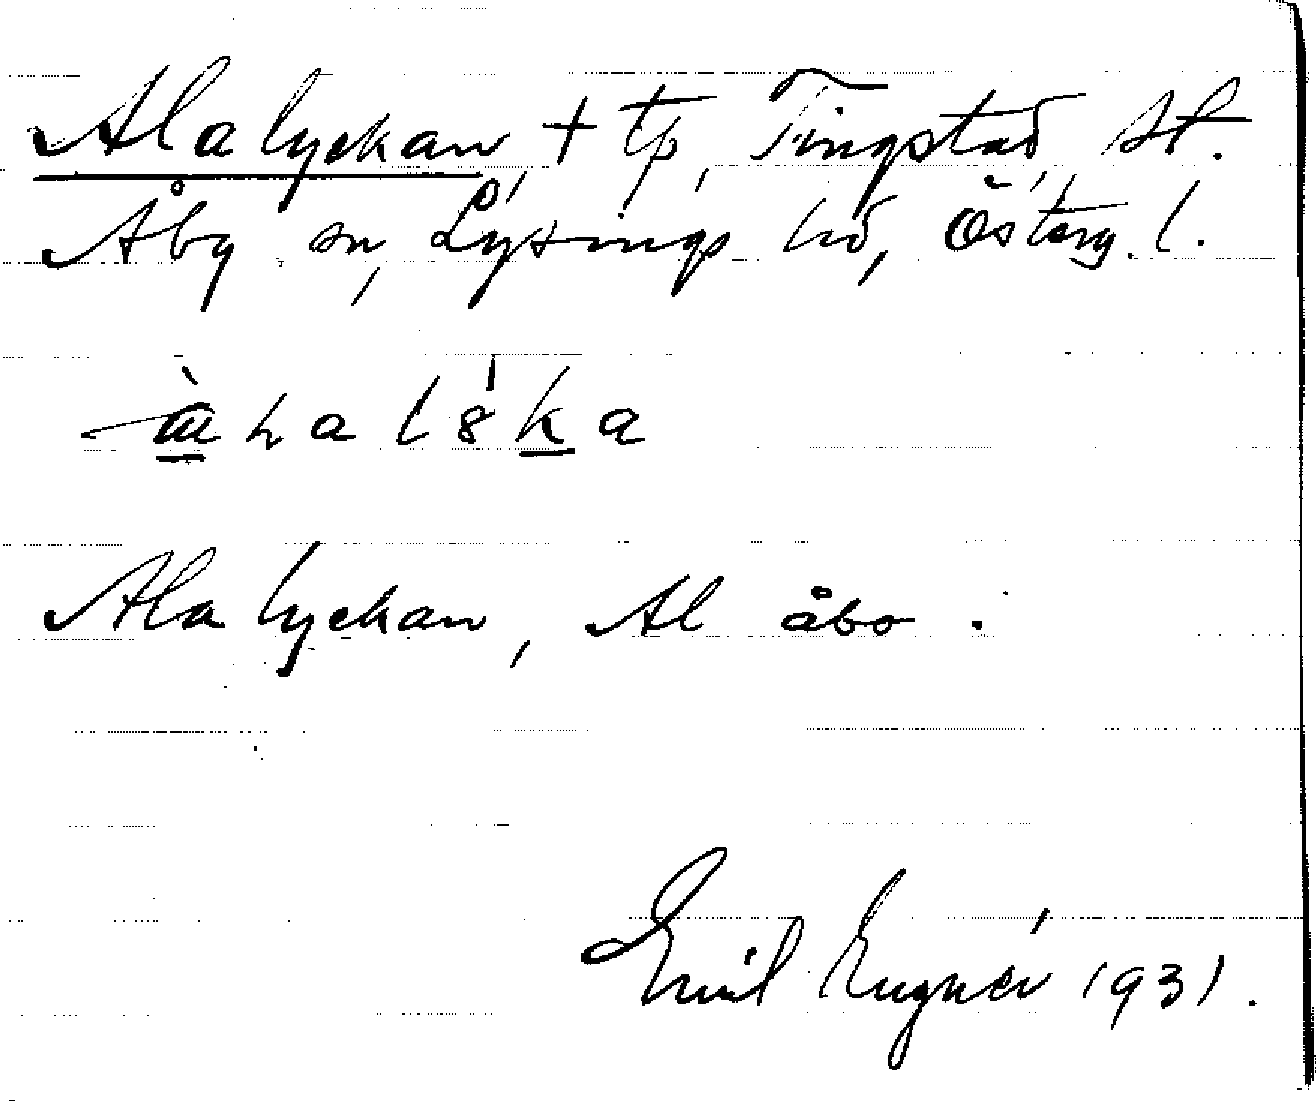 Alalyckan, + tp, Tingstad, St.
Åby sn, Lysings hd, Österg. l.
Ala lyckan, Al åbo.
Emil Eugnér 1931.